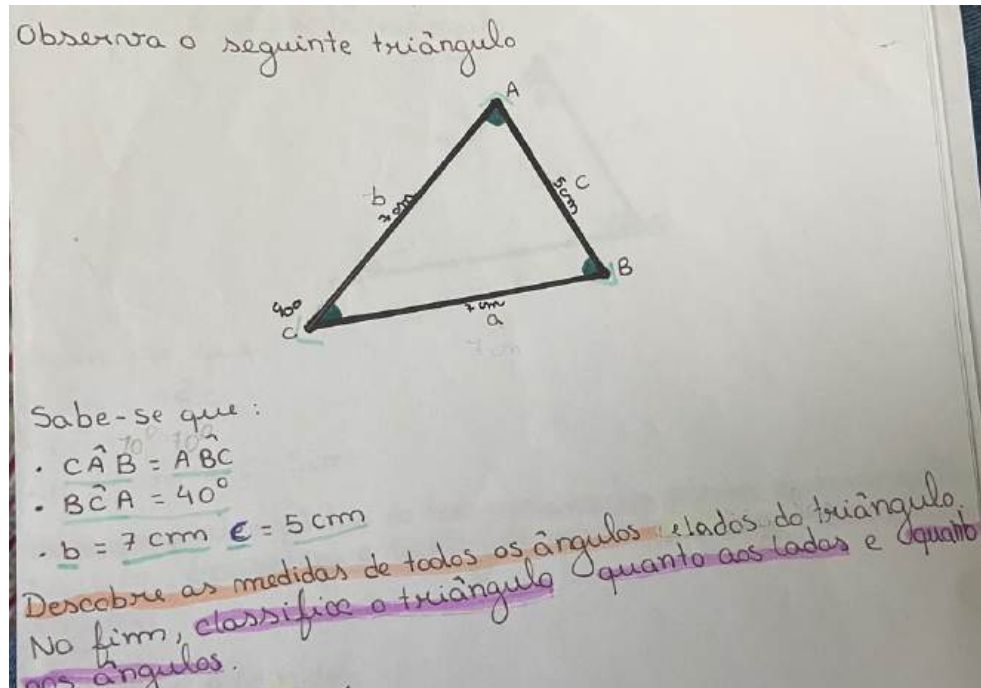 Observa o seguinte triângulo
A
b
7 cm
c
5cm
B
40°
C
7 cm
a
7 cm
Sabe-se que:
70° 70°
• CÂB = AB̂C
• BĈA = 40°
• b = 7 cm c = 5 cm
Descobre as medidas de todos os ângulos e lados do triângulo.
No fim, classifica o triângulo quanto aos lados e quanto
aos ângulos.